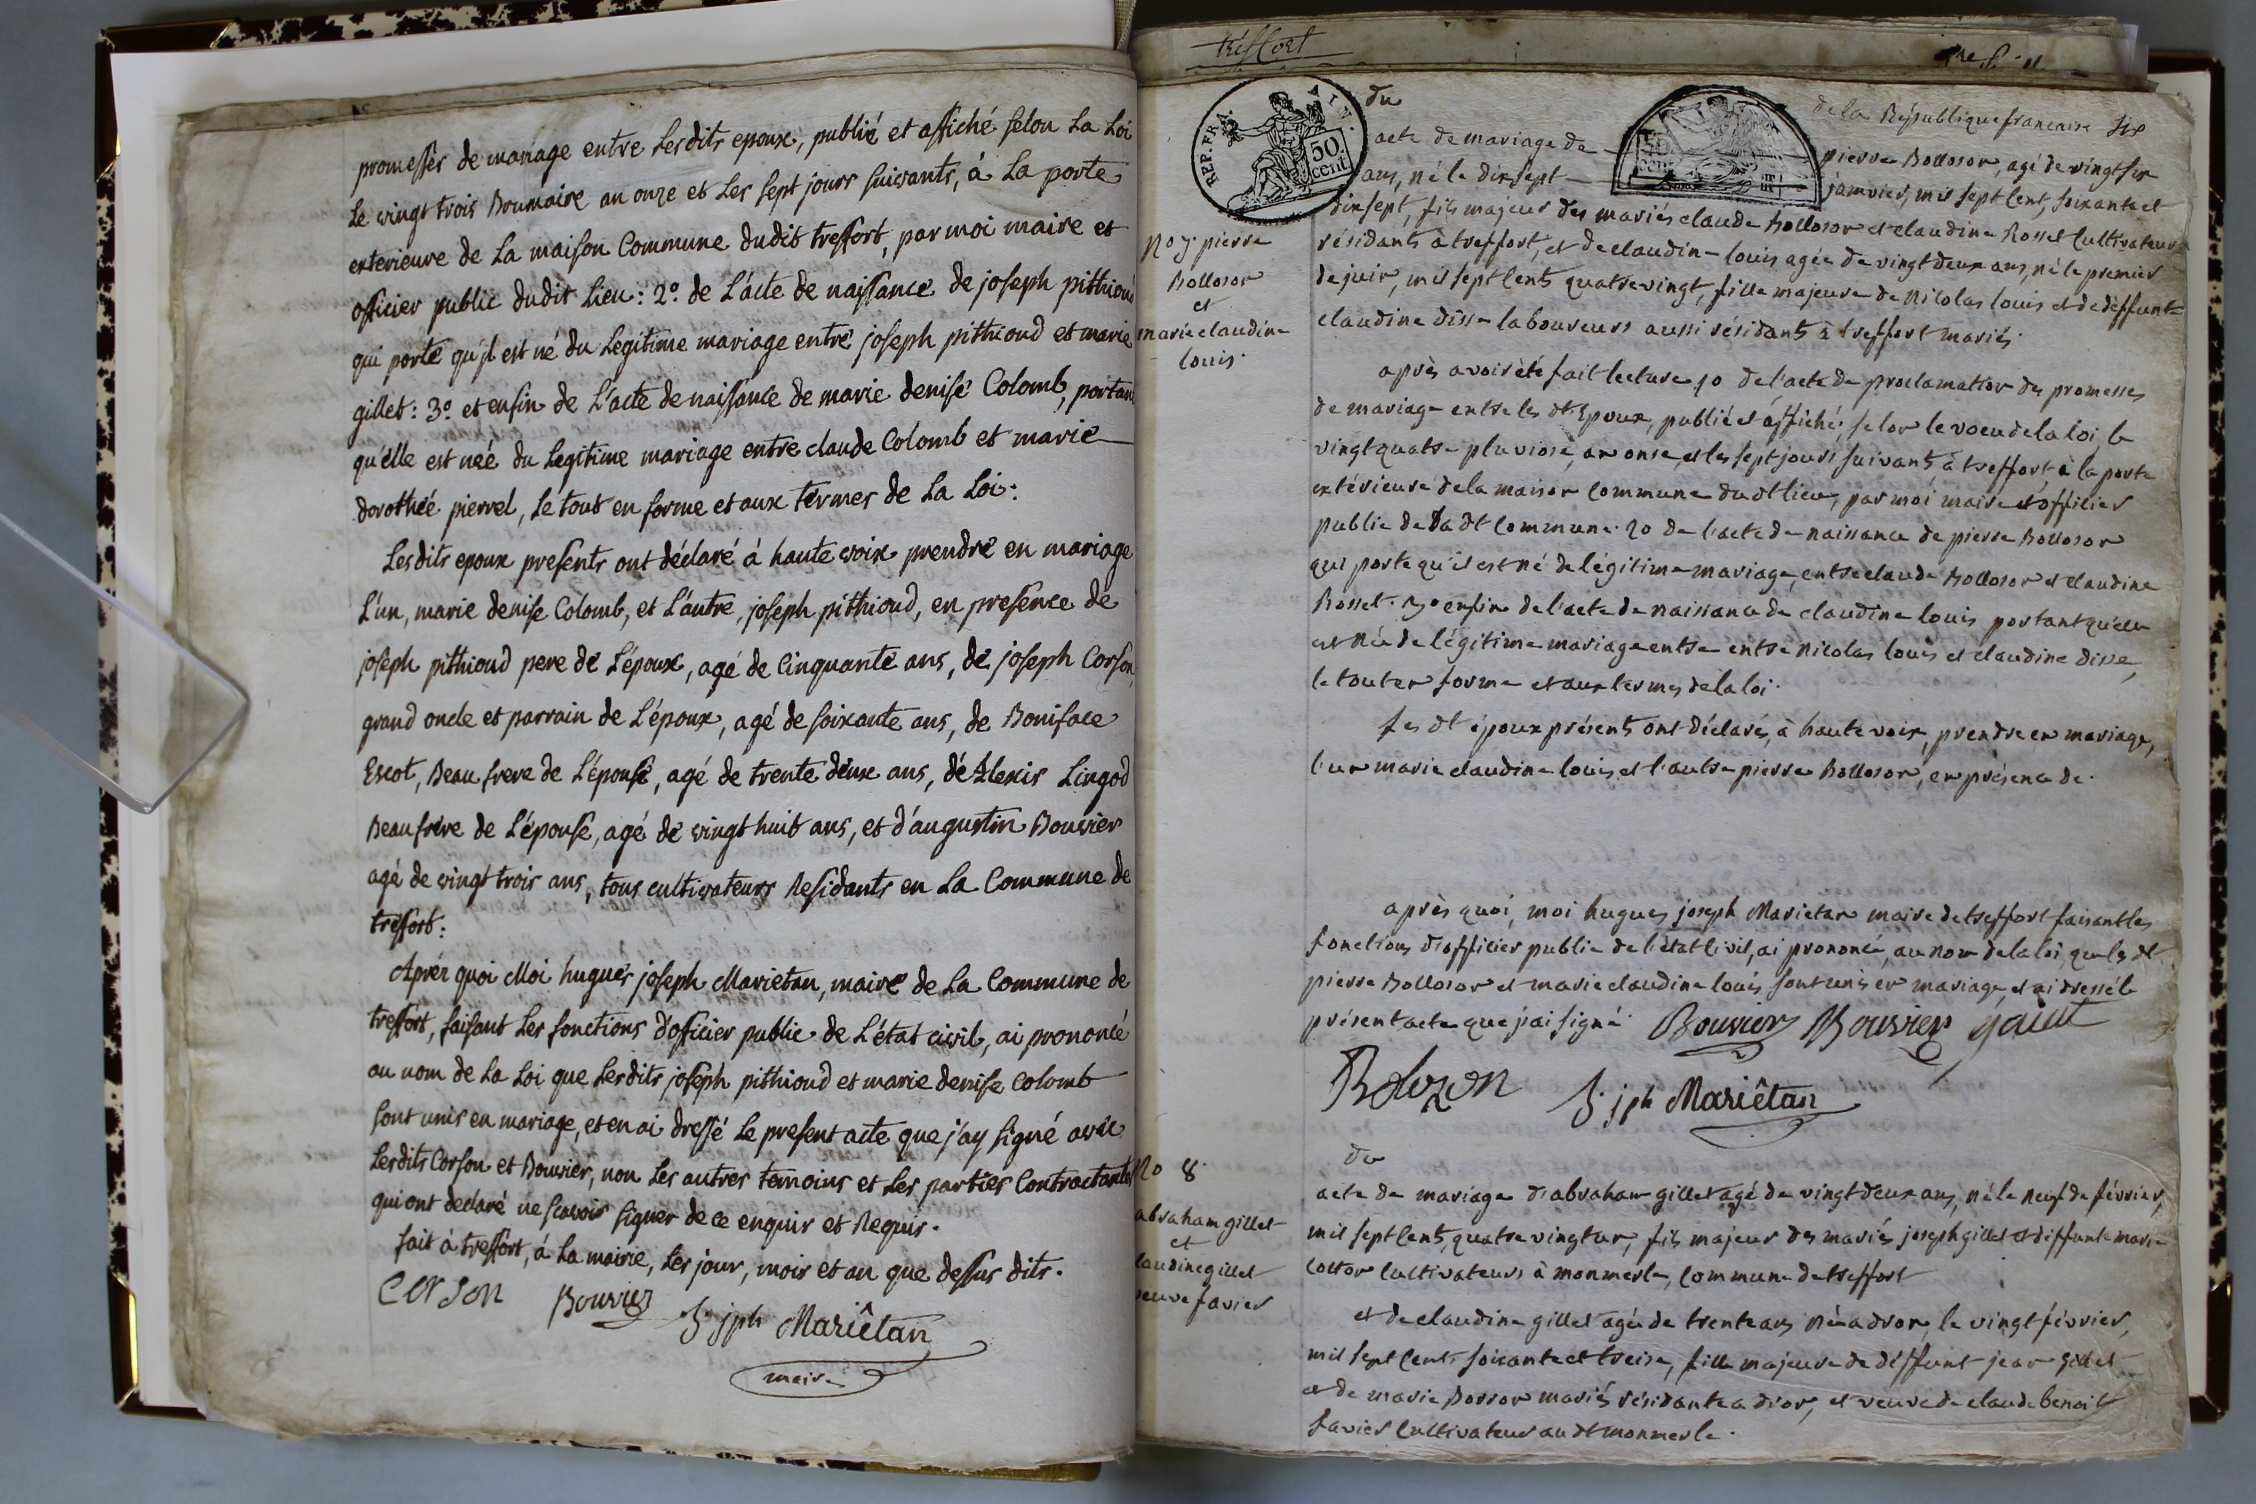 promesses de mariage entre Lesdits epoux, publié et affiché selon La Loi
Le vingt trois Brumaire an onze et Les sept jours suivants, à La porte
exterieure de La maison Commune dudit treffort, par moi maire et
officier public dudit Lieu : 2º de L'acte de naissance de joseph pithioud
qui porte qu'il est né du Legitime mariage entre joseph pithioud et marie
gillet : 3º et enfin de L'acte de naissance de marie denise Colomb, portant
qu'elle est néé du Legitime mariage entre claude Colomb et marie
dorothéé pierrel, Le tout en forme et aux termes de La Loi :
Lesdits epoux presents ont déclaré à haute voix prendre en mariage
L'un, marie denise Colomb, et L'autre, joseph pithioud, en presence de
joseph pithioud pere de L'époux, agé de Cinquante ans, de joseph Corson
grand oncle et parrain de L'époux, agé de soixante ans, de Boniface
Escot, Beau frere de L'épouse, agé de trente deux ans, de Alexis Lingod
Beau frère de L'épouse, agé de vingt huit ans, et d'augustin Bouvier
agé de vingt trois ans, tous cultivateurs Residants en La Commune de
treffort :
Après quoi Moi hugues joseph Marietan, maire de La Commune de
treffort, faisant Les fonctions d'officier public de L'état civil, ai prononcé
au nom de La Loi que Lesdits joseph pithioud et marie denise Colomb
sont unis en mariage, et en ai dressé Le present acte que j'ay signé avec
Lesdits Corson et Bouvier, non Les autres temoins et Les parties Contractantes
qui ont declaré ne scavoir signer de ce enquis et Requis.
fait à treffort, à La mairie, Les jour, mois et an que dessus dits.
Corson Bouvier h. jph Mariêtan
maire
treffort
REP. FRA. AIN.
50 cent.
du de la République francaise
acte de mariage de pierre Bollosor, agé de vingt six
ans, né le dix sept janvier, mil sept cent, soixante et
dix sept, fils majeur des mariés claude Bollosor et claudine Rosset Cultivateurs
résidants à treffort, et de claudine louis agée de vingt deux ans, né le premier
de juin, mil sept cents quatre vingt, fille majeure de Nicolas louis et de déffunte
claudine disse laboureurs aussi résidants à treffort mariés.
No 7. pierre
Bollosor
et
marie claudine
louis.
après avoir été fait lecture 1o de l'acte de proclamation des promesses
de mariage entre les dt Epoux, publié et affiché, selon le voeu de la loi le
vingt quatre pluviose, an onse, et les sept jours suivants à treffort, à la porte
extérieure de la maison Commune du dt lieu, par moi maire et officier
public de la dt Commune. 2o de l'acte de naissance de pierre Bollosor
qui porte qu'il est né de légitime mariage, entre claude Bollosor et claudine
Rosset. 3o enfin de l'acte de naissance de claudine louis portant qu'elle
est née de légitime mariage entre entre Nicolas louis et claudine disse,
le tout en forme et aux termes de la loi.
Les dt époux présents ont déclarés, à haute voix, prendre en mariage,
l'un marie claudine louis, et l'autre pierre Bollosor, en présence de.
après quoi, moi hugues joseph Marietan maire de treffort faisant les
fonctions d'officier public de l'état civil, ai prononcé, au nom de la loi, que les dt
pierre Bollosor et marie claudine louis sont unis en mariage, et ai dressé le
présent acte que j'ai signé. Bouvier Bouvier
Bolozon h. jph Mariêtan
du
No 8.
abraham gillet
et
claudine gillet
veuve favier
acte de mariage d'abraham gillet agé de vingt deux ans, né le neuf de février,
mil sept cents, quatre vingt un, fils majeur des mariés joseph gillet et diffunte marie
Cottor Cultivateurs à monmerle, Commune de treffort
et de claudine gillet agée de trente ans née a drom, le vingt février,
mil sept cents soixante et treise, fille majeure de déffunt jean gillet
et de marie Borron mariés résidante a drom, et veuve de claude benoit
favier Cultivateur au dt monmerle.